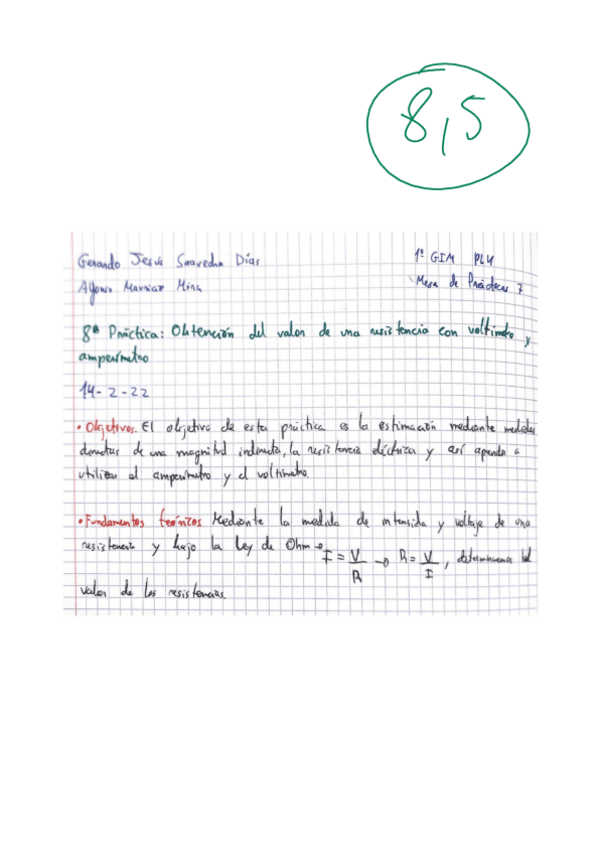 8,5
Gerardo Jesús Saavedra Días
1º GIM PL4
Alfonso Mira
Mesa de Prácticas 7
8ª Práctica: Obtención del valor de una resistencia con voltímetro y
amperímetro
14-2-22
• Objetivos. El objetivo de esta práctica es la estimación mediante medidas
directas de una magnitud indirecta, la resistencia eléctrica y así aprender a
utilizar el amperímetro y el voltímetro.
• Fundamentos teóricos Mediante la medida de intensida y voltaje de una
resistencia y bajo la Ley de Ohm → I = V/R → R = V/I , determinamos el
valor de las resistencias.